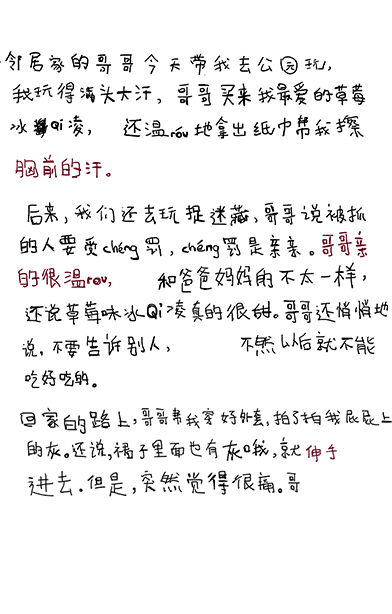 邻居家的哥哥今天带我去公园玩,
我玩得满头大汗, 哥哥买来我最爱的草莓
冰Qi凌, 还温róu地拿出纸巾帮我擦
胸前的汗。
后来,我们还去玩捉迷藏,哥哥说被抓
的人要受chéng罚,chéng罚是亲亲。哥哥亲
的很温rou, 和爸爸妈妈的不太一样,
还说草莓味冰Qi凌真的很甜。哥哥还悄悄地
说,不要告诉别人, 不然以后就不能
吃好吃的。
回家的路上,哥哥帮我穿好外套,拍了拍我屁屁上
的灰。还说,裙子里面也有灰哦,就伸手
进去.但是,突然觉得很痛。哥